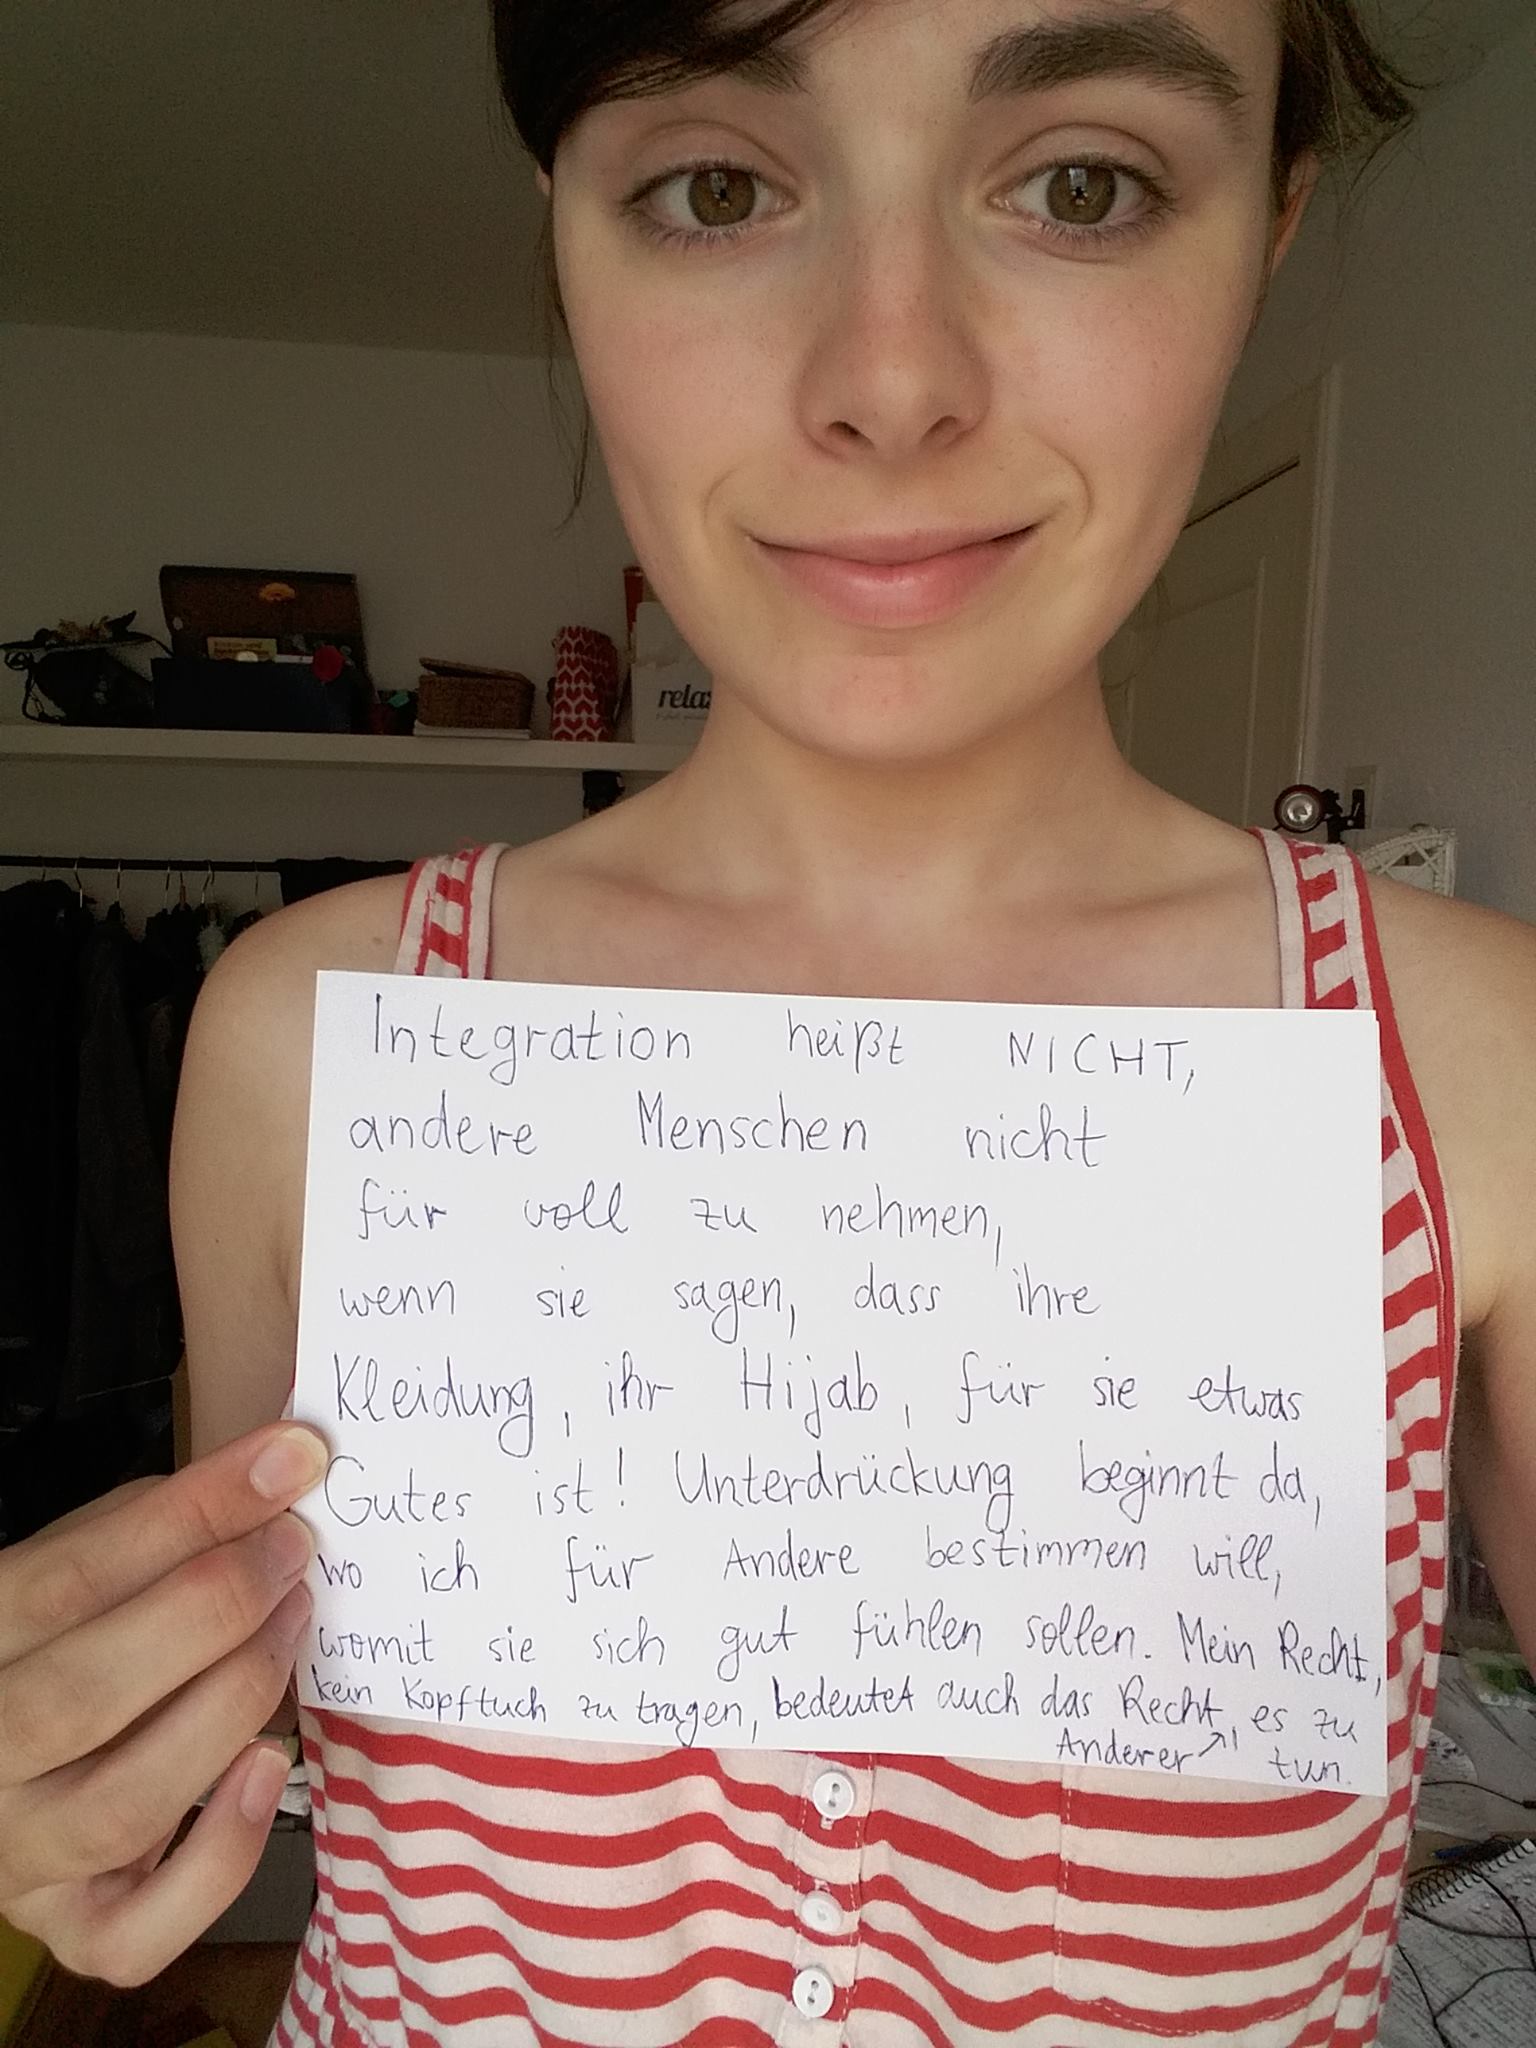 relax
Integration heißt NICHT,
andere Menschen nicht
für voll zu nehmen,
wenn sie sagen, dass ihre
Kleidung, ihr Hijab, für sie etwas
Gutes ist! Unterdrückung beginnt da,
wo ich für Andere bestimmen will,
womit sie sich gut fühlen sollen. Mein Recht,
kein Kopftuch zu tragen, bedeutet auch das Recht, es zu
Anderer ↗ tun.